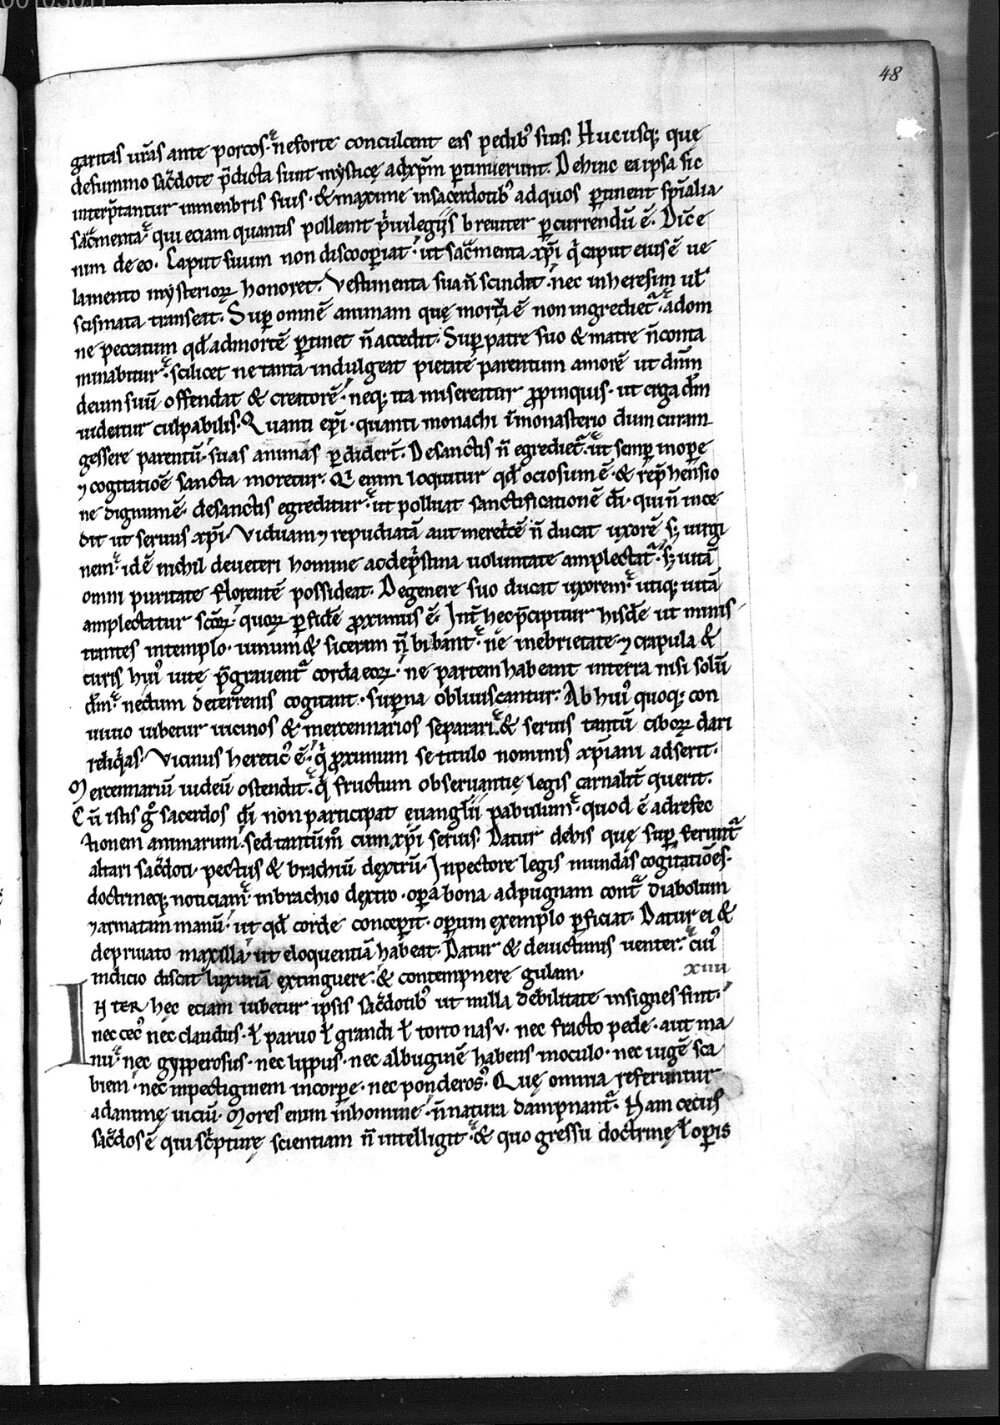 48
garitas ur̄as ante porcos· ne forte conculcent eas pedibꝰ suis. Hucusqꝫ que
de summo sac̄dote p̄dicta sunt mysticę ad xp̄m ꝑtinuerunt. Dehinc ea ipsa sic
interp̄tantur in menbris suis· & maxime in sacerdotibꝰ ad quos ꝑtinent sp̄ialia
sac̄menta· qui eciam quantis polleant p̄uilegiis breuiter ꝑcurrendū ē. Dic̄ e
nim de eo. Caput suum non discooꝑiat· ut sac̄menta xp̄i q̄ caput eius ē ue
lamento mysterioꝝ honoret. Vestimenta sua n̄ scindit· nec in heresim ul̄
scismata transeat. Suꝑ omnē animam quę mortua ē non ingredietᷣ· ad om
ne peccatum qd̄ ad mortē ꝑtinet n̄ accedit. Suꝑ patre suo & matre n̄ conta
minabitur· scilicet ne tantā indulgeat pietate parentum amorē ut dn̄m
deum suū offendat & creatorē· neqꝫ ita misereatur ꝓpinquis· ut erga dm̄
uideatur culpabilis. Quanti ep̄i· quanti monachi ī monasterio dum curam
gessere parentū· suas animas ꝑdider̄t. De sanctis n̄ egredietᷣ· ut semꝑ in oꝑe
⁊ cogitatiōe sancta moretur. Qⁱ enim loquitur qd̄ ociosum ē· & rep̄hensio
ne dignum ē· de sanctis egreditur· ut polluat sanctificationē dī· qui n̄ ince
dit ut seruus xp̄i. Viduam ⁊ repudiatā aut meret̄cē n̄ ducat uxorē sꝫ uirgi
nem· idē nichil de ueteri homine ac de p̄stina uoluntate amplectatᷣ· sꝫ uitā
omni puritate florentē possideat. De genere suo ducat uxorem· utiqꝫ uitā
amplectatur sc̄oꝝ· quoꝝ ꝑ fidē ꝓximus ē. Int̄ hec p̄cipitur hisdē ut minis
trantes in templo· uinum & siceram n̄ bibant· ne in ebrietate ⁊ crapula &
curis huiꝰ uitę p̄grauentᷣ corda eoꝝ· ne partem habeant in terra nisi solū
dm̄· ne dum de terrenis cogitant· suꝑna obliuiscantur. Ab huiꝰ quoqꝫ con
uiuio iubetur uicinos & mercennarios separari· & seruis tantū ciboꝝ dari
reliq̄as. Vicinus hereticꝰ ē· q̄ ꝓximum se titulo nominis xp̄iani adserit.
Mercennariū iudeū ostendit· q̄ fructum obseruantię legis carnalit̄ querit.
Cū istis g̊ sacerdos dī non participat euanglii pabulum· quod ē ad refec
tionem animarum· sed tantūm̊ cum xp̄i seruis. Datur de bis quę suꝑferuntᷣ
altari sac̄doti· pectus & brachiū dextrū. In pectore legis mundas cogitatiōes·
doctrineqꝫ noticiam· in brachio dextro· oꝑa bona ad pugnam contᷓ diabolum
⁊ armatam manū· ut qd̄ corde conceꝑit· oꝑum exemplo ꝑficiat. Datur ei &
de priuato maxilla· ut eloquentiā habeat. Datur & de uictimis uenter· cuiꝰ
indicio discit luxuriā extinguere· & contempnere gulam·
xiiii
INTER hęc eciam iubetur ipsis sac̄dotibꝰ ut nulla debilitate insignes sint·
nec cecꝰ nec claudus· ł paruo ł grandi ł torto naso· nec fracto pede· aut ma
nu· nec gypperosus· nec lippus· nec albuginē habens in oculo· nec iugē sca
biem· nec inpectiginem in corpe· nec ponderosꝰ. Quę omnia referuntur
ad animę uiciū. Mores enim in homine· n̄ natura dampnantᷣ. Nam cecus
sac̄dos ē qui sc̄pturę scientiam n̄ intelligit· & quo gressu doctrinę ł oꝑis